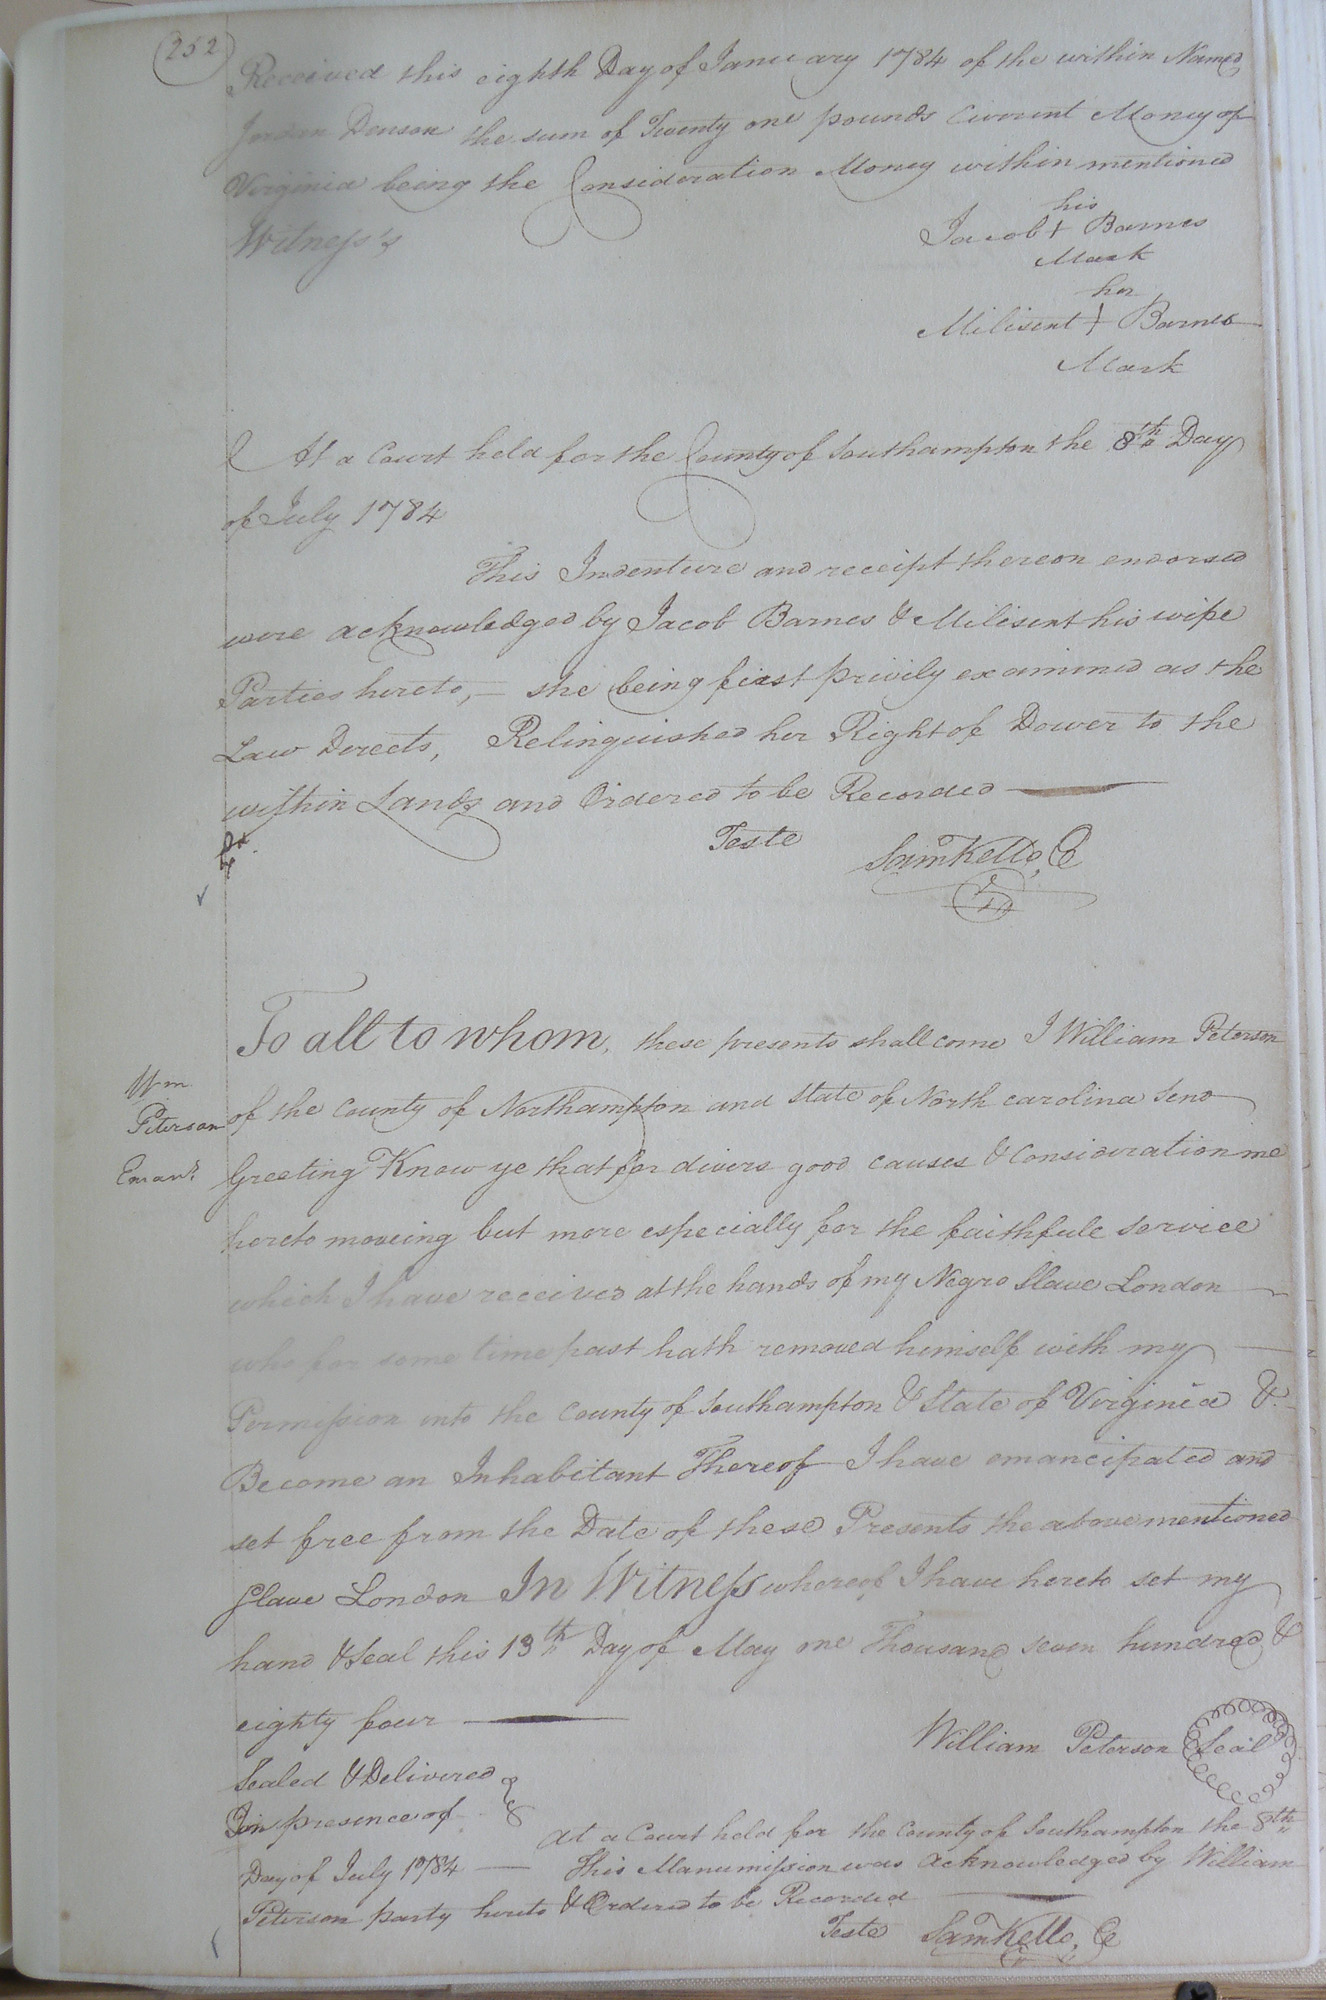 252
Received this eighth Day of January 1784 of the within Named
Jordan Denson the sum of Twenty one pounds Current Money of
Virginia being the Consideration Money within mentioned
Witness's
his
Jacob + Barnes
Mark
her
Milisent + Barnes
Mark
At a Court held for the County of Southampton the 8th Day
of July 1784
This Indenture and receipt thereon endorsed
were acknowledged by Jacob Barnes & Milisent his wife
Parties hereto, — she being first privily examined as the
Law Derects, Relinquished her Right of Dower to the
within Lands and Ordered to be Recorded
Teste
Saml Kello, C
To all to whom, these presents shall come I William Peterson
Wm
Peterson
Eman.
of the County of Northampton and State of North carolina Send
Greeting Know ye that for divers good causes & Consideration me
hereto moveing but more especially for the faithfull service
which I have received at the hands of my Negro Slave London
who for some time past hath removed himself with my
Permission into the County of Southampton & State of Virginia &
Become an Inhabitant Thereof I have emancipated and
set free from the Date of these Presents the above mentioned
Slave London In Witness whereof I have hereto set my
hand & Seal this 13th Day of May one Thousand seven hundred &
eighty four
William Peterson Seal
Sealed & Delivered
In presence of
At a Court held for the County of Southampton the 8th
Day of July 1784 — This Manumission was acknowledged by William
Peterson party hereto & Ordered to be Recorded
Teste Saml Kello, C